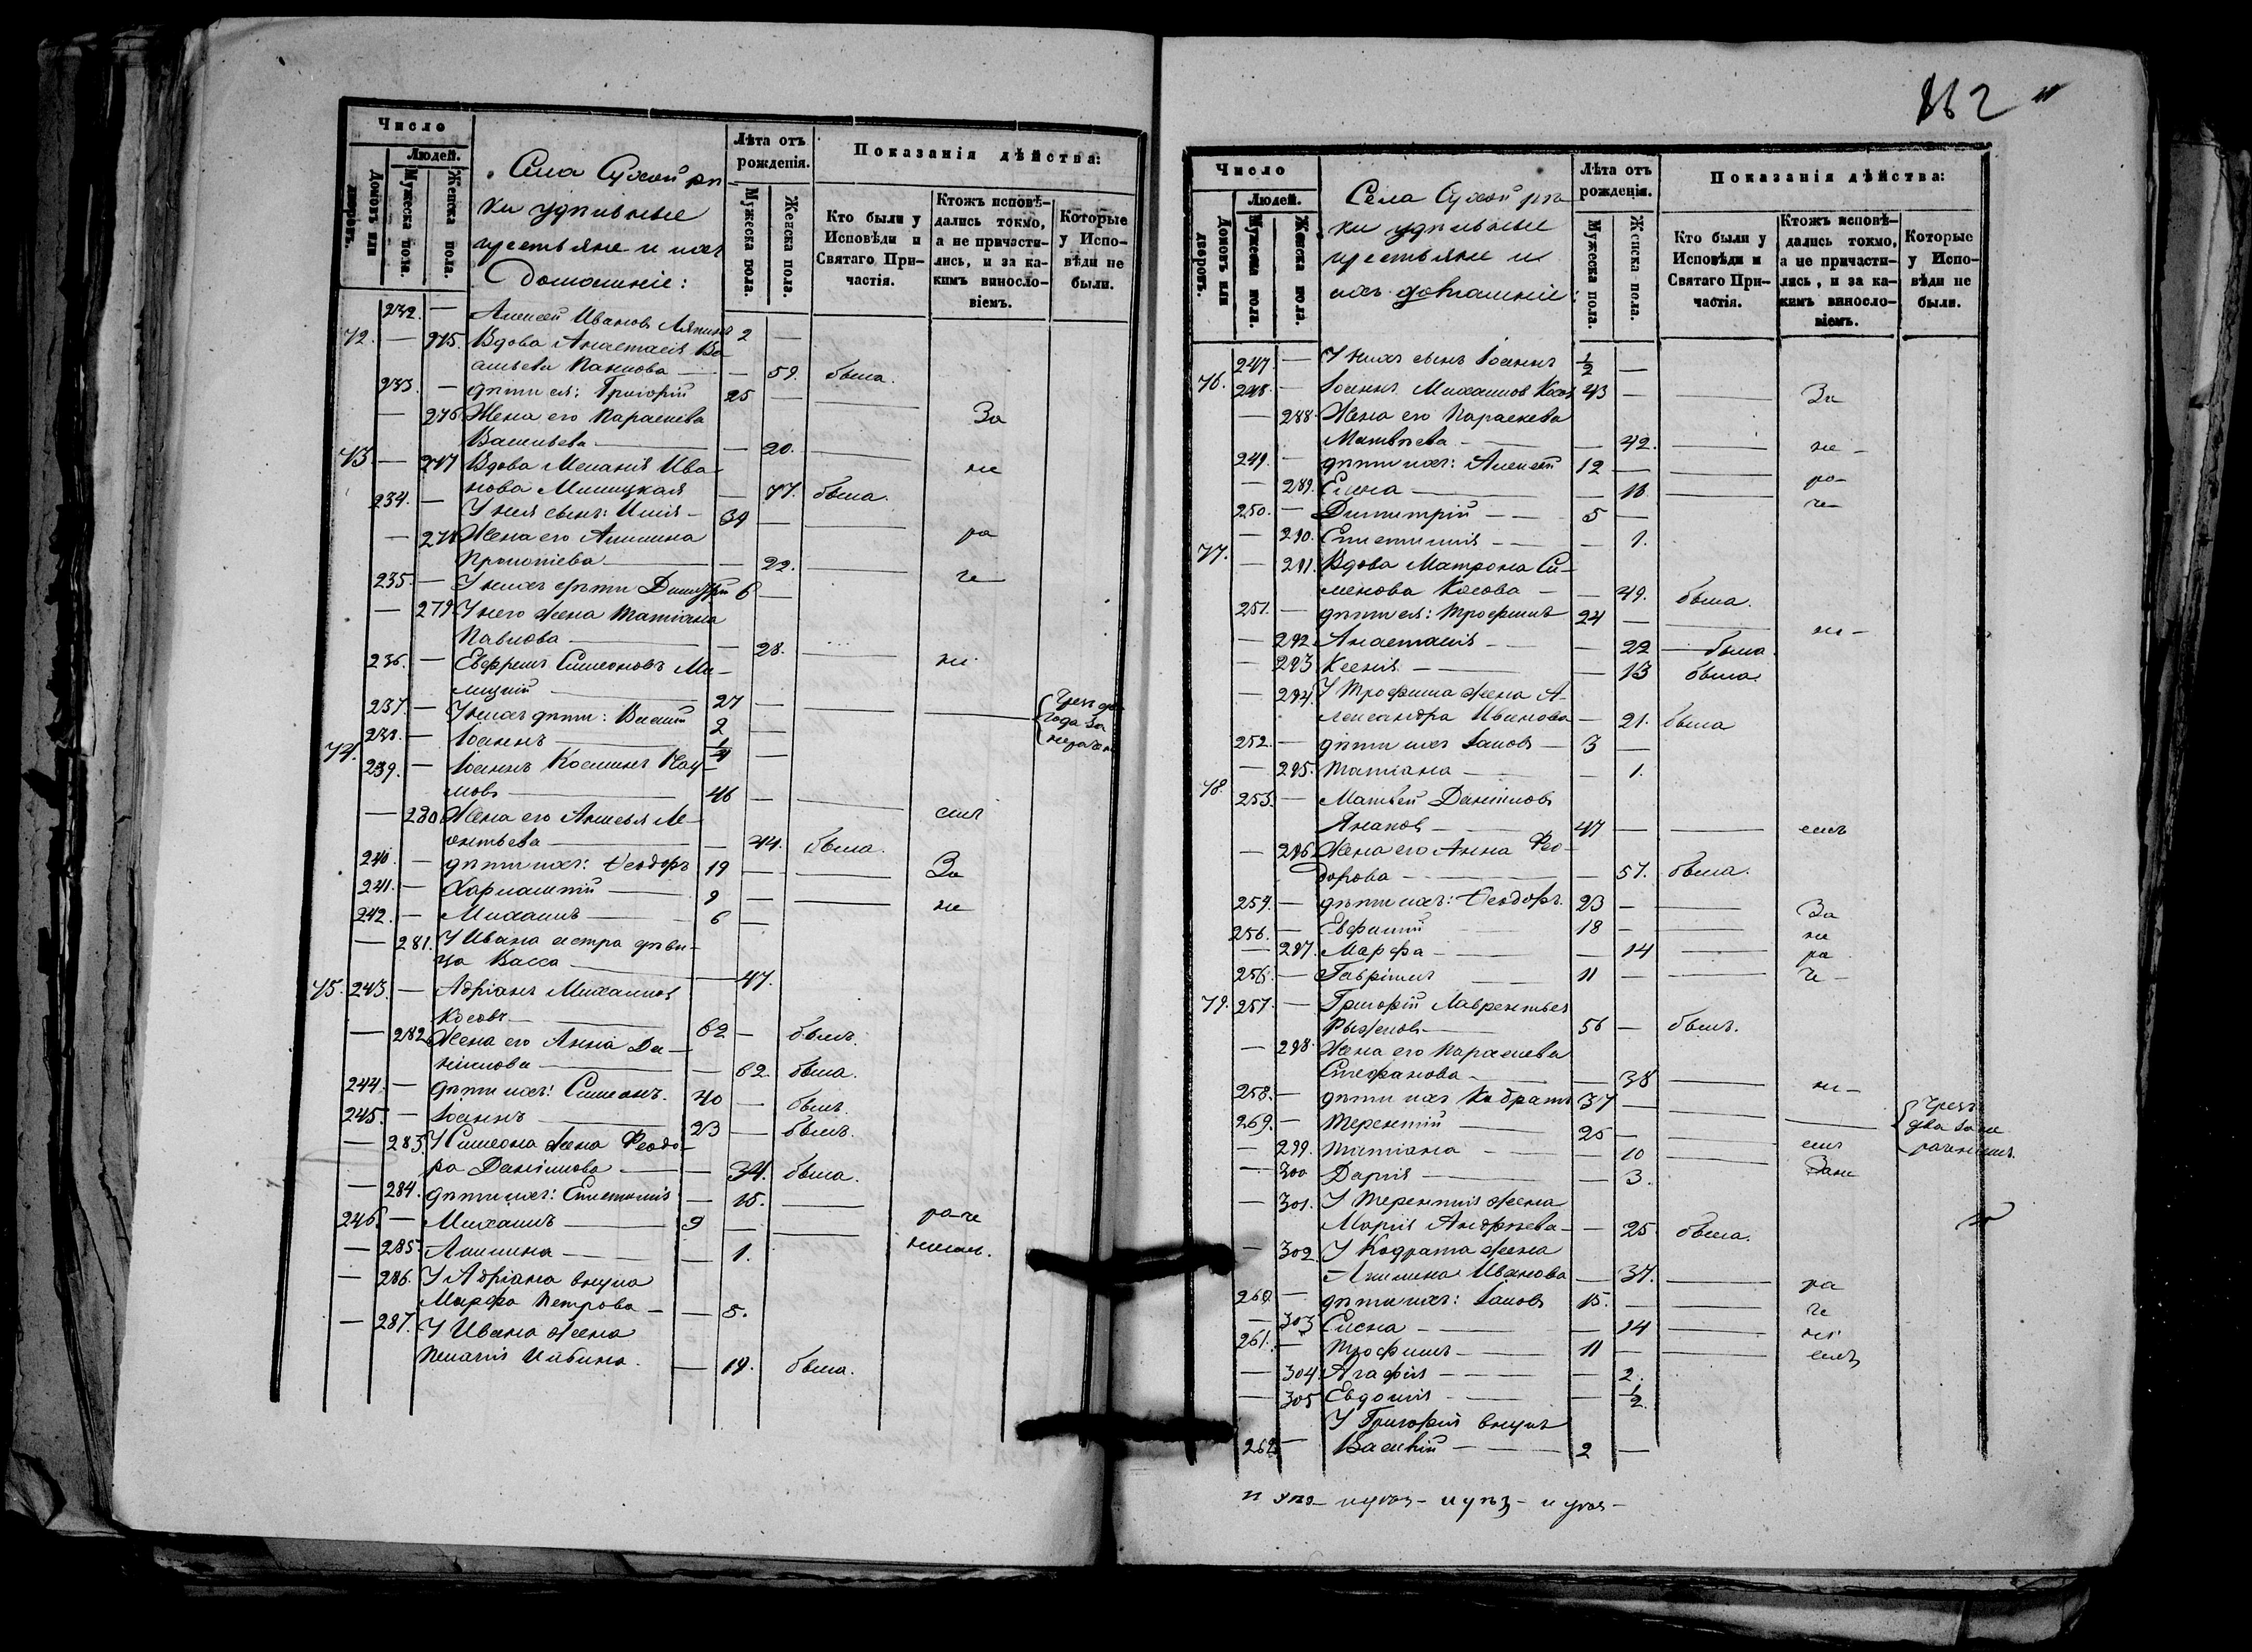 Число
Людей.
Домовъ или дворовъ.
Мужеска пола.
Женска пола.
Села Сухой рѣ
ки удѣльные
крестьяне и ихъ
Домашніе:
Лѣта отъ рожденія.
Мужеска пола.
Женска пола.
Показанія дѣйства:
Кто были у Исповѣди и Святаго Причастія.
Ктожъ исповѣдались токмо, а не причастились, и за какимъ винословіемъ.
Которые у Исповѣди не были.
232. — Алексей Ивановъ 2 —
72. — 275. Вдова Анастасія Ва-
сильева — 59. была.
233. — дѣти ея: Григорій 25 —
— 276 Жена его Параскева За
Васильева — 20.
73. — 277 Вдова Меланія Ива- не
нова Милицкая — 77. была.
234. — У нея сынъ: Илія 39 —
— 278 Жена его Акилина ра
Прокопіева — 22.
235. — У нихъ дѣти Димитрій 6 — че
— 279 У него жена Татіана
Павлова — 28. ні
236. — Евфремъ Симеоновъ Ми-
лицкій 27 —
237. — У нихъ дѣти: Василій 2 —
238. — Іоаннъ 1/4 —
74. 239. — Іоаннъ Косминъ Нау-
мовъ 46 — емъ
— 280 Жена его Аксинья Ле-
онтьева — 44. была.
240. — дѣти ихъ: Ѳеодоръ 19 — За
241. — Харлампій 9 — не
242. — Михаилъ 6 —
— 281. У Ивана сестра дѣви-
ца Васса — 47.
75. 243. — Адріанъ Михаиловъ
Косовъ 62 — былъ.
— 282 Жена его Анна Да-
ніилова — 62. была.
244. — дѣти ихъ: Симеонъ. 40 — былъ.
245. — Іоаннъ 23 — былъ.
— 283. У Симеона жена Феодо-
ра Даніилова — 34. была.
— 284. дѣти ихъ: Епистимія — 15. ра-че
246. — Михаилъ 9 — ніемъ.
— 285. Акилина — 1.
— 286. У Адріана внука
Марфа Петрова — 5.
— 287. У Ивана жена
Пелагія — 19. была.
Число
Людей.
Домовъ или дворовъ.
Мужеска пола.
Женска пола.
Села Сухой рѣ-
ки удѣльные
крестьяне и
ихъ домашніе:
Лѣта отъ рожденія.
Мужеска пола.
Женска пола.
Показанія дѣйства:
Кто были у Исповѣди и Святаго Причастія.
Ктожъ исповѣдались токмо, а не причастились, и за какимъ винословіемъ.
Которые у Исповѣди не были.
247. — У нихъ сынъ Іоаннъ 1/2 —
76. 248. — Іоаннъ Михаиловъ Косовъ 43 — За
— 288. Жена его Параскева
Матвѣева — 42. не
249. — дѣти ихъ: Алексей 12 — ра-
— 289. Елена — 16. че
250. — Димитрій 5 —
— 290. Епистимія — 1.
77. — 291. Вдова Матрона Си-
меонова Косова — 49. была.
251. — дѣти ея: Трофимъ 24 — ні-
— 292. Анастасія — 22 была.
— 293 Ксенія — 13 была.
— 294. У Трофима жена А-
лександра Иванова — 21. была
252. — дѣти ихъ Іаковъ 3 —
— 295. Татіана — 1.
78. 253. — Матвей Даніиловъ
47 — емъ
— 296 Жена его Анна Фео-
дорова — 57. была.
254. — дѣти ихъ: Ѳеодоръ. 23 — За
256. — Евфимій 18 — не
— 297. Марфа — 14 ра
256. — Гавріилъ 11 — че
79. 257. — Григорій Лаврентьев
Рыжковъ 56 — былъ.
— 298. Жена его Параскева
Стефанова — 38 ні-
258. — дѣти ихъ Кодратъ 37 —
269. — Терентій 25 — емъ
— 299. Татіана — 10 Зане
— 300 Дарія — 3.
— 301. У Терентія жена
Марія Андреева — 25. была.
— 302 У Кодрата жена
Акилина Иванова — 37. ра
260 — дѣти ихъ: Іаковъ 15. — че
— 303 Елена — 14 ні
261. — Трофимъ 11 — емъ
— 304. Агафія — 2.
— 305 Евдокія — 1/2
У Григорія внукъ
262 — Василій 2 —